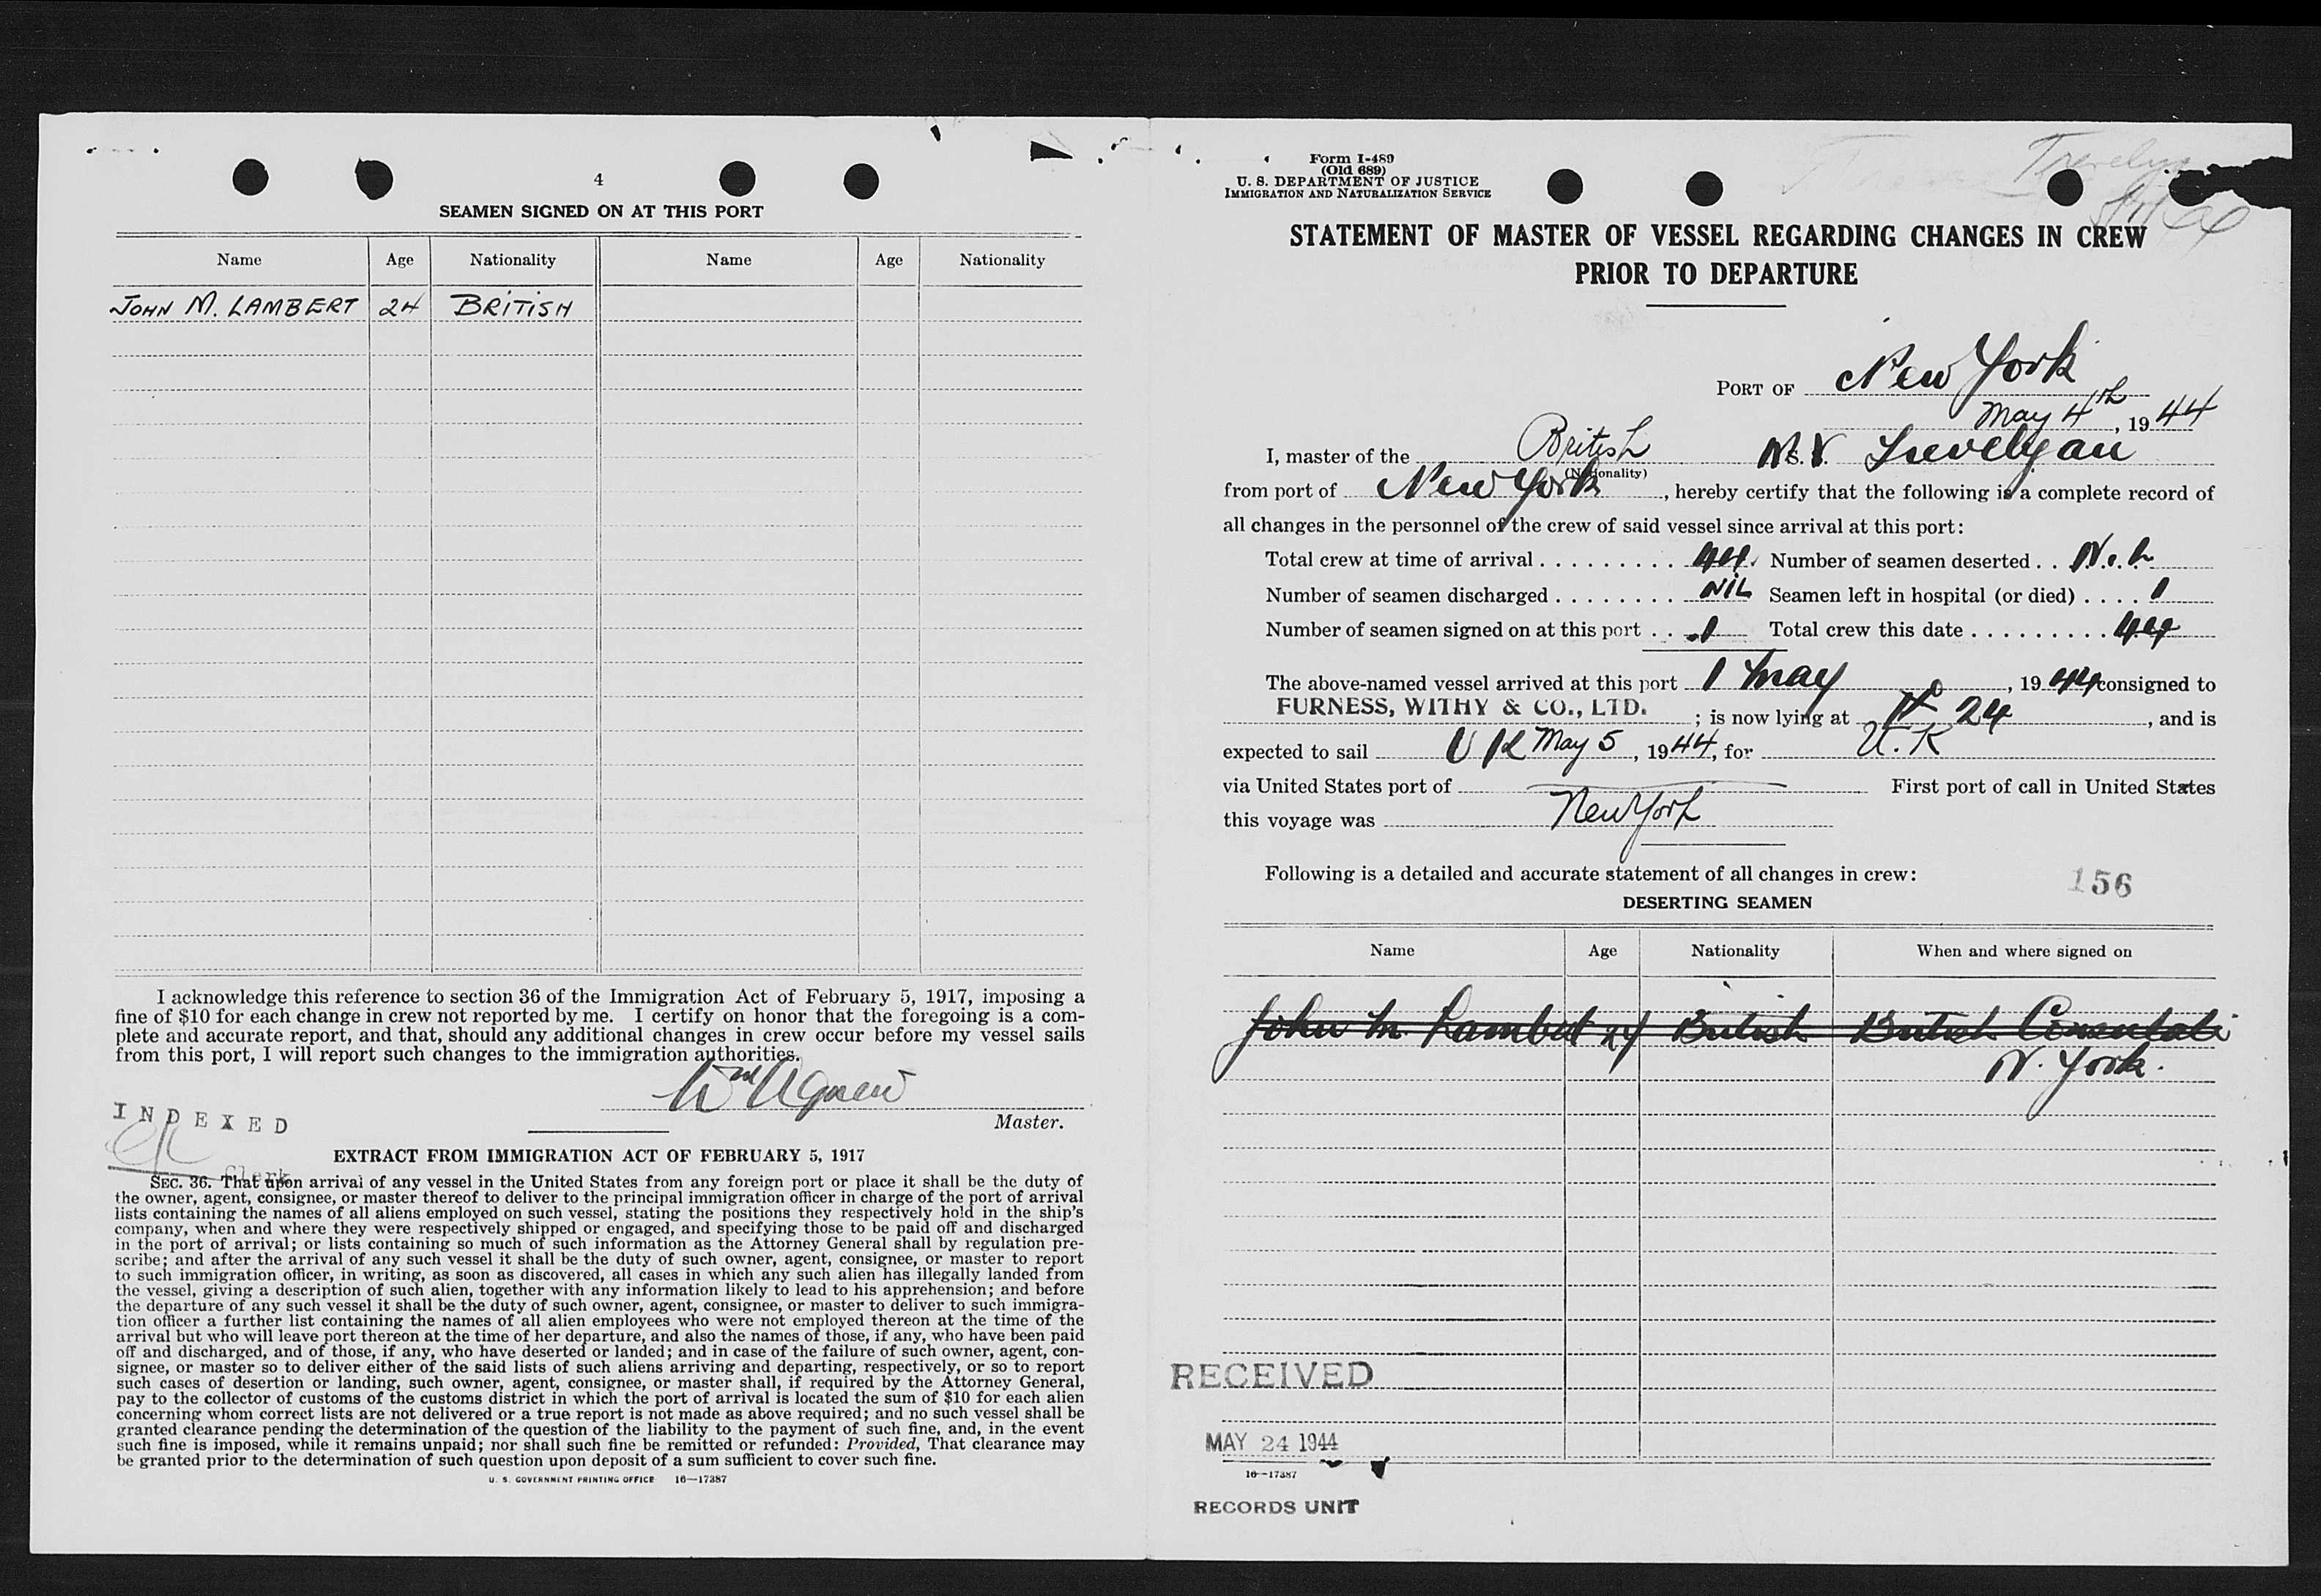 4
SEAMEN SIGNED ON AT THIS PORT
Name Age Nationality Name Age Nationality
JOHN M. LAMBERT 24 BRITISH
I acknowledge this reference to section 36 of the Immigration Act of February 5, 1917, imposing a
fine of $10 for each change in crew not reported by me. I certify on honor that the foregoing is a com-
plete and accurate report, and that, should any additional changes in crew occur before my vessel sails
from this port, I will report such changes to the immigration authorities.
Wm Agnew
Master.
INDEXED
Clerk
EXTRACT FROM IMMIGRATION ACT OF FEBRUARY 5, 1917
SEC. 36. That upon arrival of any vessel in the United States from any foreign port or place it shall be the duty of
the owner, agent, consignee, or master thereof to deliver to the principal immigration officer in charge of the port of arrival
lists containing the names of all aliens employed on such vessel, stating the positions they respectively hold in the ship's
company, when and where they were respectively shipped or engaged, and specifying those to be paid off and discharged
in the port of arrival; or lists containing so much of such information as the Attorney General shall by regulation pre-
scribe; and after the arrival of any such vessel it shall be the duty of such owner, agent, consignee, or master to report
to such immigration officer, in writing, as soon as discovered, all cases in which any such alien has illegally landed from
the vessel, giving a description of such alien, together with any information likely to lead to his apprehension; and before
the departure of any such vessel it shall be the duty of such owner, agent, consignee, or master to deliver to such immigra-
tion officer a further list containing the names of all alien employees who were not employed thereon at the time of the
arrival but who will leave port thereon at the time of her departure, and also the names of those, if any, who have been paid
off and discharged, and of those, if any, who have deserted or landed; and in case of the failure of such owner, agent, con-
signee, or master so to deliver either of the said lists of such aliens arriving and departing, respectively, or so to report
such cases of desertion or landing, such owner, agent, consignee, or master shall, if required by the Attorney General,
pay to the collector of customs of the customs district in which the port of arrival is located the sum of $10 for each alien
concerning whom correct lists are not delivered or a true report is not made as above required; and no such vessel shall be
granted clearance pending the determination of the question of the liability to the payment of such fine, and, in the event
such fine is imposed, while it remains unpaid; nor shall such fine be remitted or refunded: Provided, That clearance may
be granted prior to the determination of such question upon deposit of a sum sufficient to cover such fine.
U. S. GOVERNMENT PRINTING OFFICE 16—17387
Form I-489
(Old 689)
U. S. DEPARTMENT OF JUSTICE
IMMIGRATION AND NATURALIZATION SERVICE
STATEMENT OF MASTER OF VESSEL REGARDING CHANGES IN CREW
PRIOR TO DEPARTURE
PORT OF New York
May 4th, 1944
I, master of the British Trevelyan
(Nationality)
from port of New York, hereby certify that the following is a complete record of
all changes in the personnel of the crew of said vessel since arrival at this port:
Total crew at time of arrival 44 Number of seamen deserted Nil
Number of seamen discharged NIL Seamen left in hospital (or died) 1
Number of seamen signed on at this port 1 Total crew this date 44
The above-named vessel arrived at this port 1 May, 1944 consigned to
FURNESS, WITHY & CO., LTD.; is now lying at 24, and is
expected to sail UK May 5, 1944, for U.K
via United States port of First port of call in United States
this voyage was New York
Following is a detailed and accurate statement of all changes in crew:
156
DESERTING SEAMEN
Name Age Nationality When and where signed on
John M. Lambert 24 British British Consulate
N. York.
RECEIVED
MAY 24 1944
16—17387
RECORDS UNIT